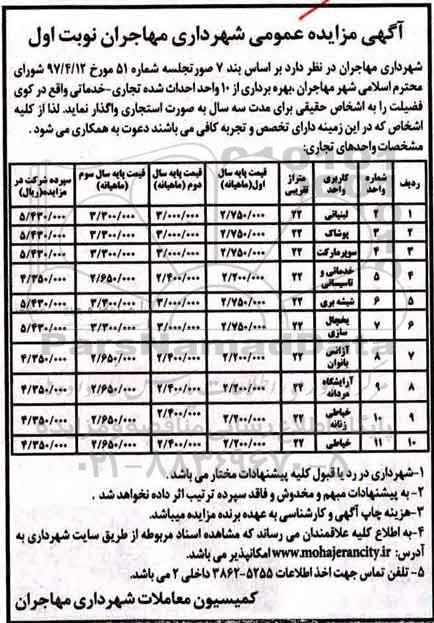 آگهی مزایده عمومی شهرداری مهاجران نوبت اول
شهرداری مهاجران در نظر دارد بر اساس بند ۷ صورتجلسه شماره ۵۱ مورخ ۹۷/۴/۱۲ شورای
محترم اسلامی شهر مهاجران ،بهره برداری از ۱۰ واحد احداث شده تجاری-خدماتی واقع در کوی
فضیلت را به اشخاص حقیقی برای مدت سه سال به صورت استجاری واگذار نماید. لذا از کلیه
اشخاص که در این زمینه دارای تخصص و تجربه کافی می باشند دعوت به همکاری می شود .
مشخصات واحدهای تجاری:
ردیف شماره واحد کاربری واحد متراژ تقریبی قیمت پایه سال اول(ماهیانه) قیمت پایه سال دوم (ماهیانه) قیمت پایه سال سوم (ماهیانه) سپرده شرکت در مزایده(ریال)
۱ ۲ لبنیاتی ۲۲ ۲/۷۵۰/۰۰۰ ۳/۰۰۰/۰۰۰ ۳/۳۰۰/۰۰۰ ۵/۴۳۰/۰۰۰
۲ ۳ پوشاک ۲۲ ۲/۷۵۰/۰۰۰ ۳/۰۰۰/۰۰۰ ۳/۳۰۰/۰۰۰ ۵/۴۳۰/۰۰۰
۳ ۴ سوپرمارکت ۲۲ ۲/۷۵۰/۰۰۰ ۳/۰۰۰/۰۰۰ ۳/۳۰۰/۰۰۰ ۵/۴۳۰/۰۰۰
۴ ۵ خدماتی و تاسیساتی ۲۲ ۲/۲۰۰/۰۰۰ ۲/۴۰۰/۰۰۰ ۲/۶۵۰/۰۰۰ ۴/۳۵۰/۰۰۰
۵ ۶ شیشه بری ۲۲ ۲/۷۵۰/۰۰۰ ۳/۰۰۰/۰۰۰ ۳/۳۰۰/۰۰۰ ۵/۴۳۰/۰۰۰
۶ ۷ یخچال سازی ۲۲ ۲/۷۵۰/۰۰۰ ۳/۰۰۰/۰۰۰ ۳/۳۰۰/۰۰۰ ۵/۴۳۰/۰۰۰
۷ آژانس بانوان ۲۲ ۲/۲۰۰/۰۰۰ ۲/۴۰۰/۰۰۰ ۲/۶۵۰/۰۰۰ ۴/۳۵۰/۰۰۰
۸ آرایشگاه مردانه ۲/۲۰۰/۰۰۰ ۲/۴۰۰/۰۰۰ ۲/۶۵۰/۰۰۰ ۴/۳۵۰/۰۰۰
۹ ۱۰ خیاطی زنانه ۲۲ ۲/۲۰۰/۰۰۰ ۲/۴۰۰/۰۰۰ ۲/۶۵۰/۰۰۰ ۴/۳۵۰/۰۰۰
۱۰ ۱۱ خیاطی ۲۲ ۲/۲۰۰/۰۰۰ ۲/۴۰۰/۰۰۰ ۲/۶۵۰/۰۰۰ ۴/۳۵۰/۰۰۰
ParsNamadData
پایگاه اطلاع رسانی مناقصه و مزایده
۰۲۱-۸۸۳۴۹۶۷۰
۱-شهرداری در رد یا قبول کلیه پیشنهادات مختار می باشد .
۲- به پیشنهادات مبهم و مخدوش و فاقد سپرده ترتیب اثر داده نخواهد شد .
۳-هزینه چاپ آگهی و کارشناسی به عهده برنده مزایده میباشد.
۴-به اطلاع کلیه علاقمندان می رساند که مشاهده اسناد مربوطه از طریق سایت شهرداری به
آدرس: www.mohajerancity.ir امکانپذیر می باشد.
۵- تلفن تماس جهت اخذ اطلاعات ۵۲۵۵-۳۸۶۲ داخلی ۲ می باشد.
کمیسیون معاملات شهرداری مهاجران